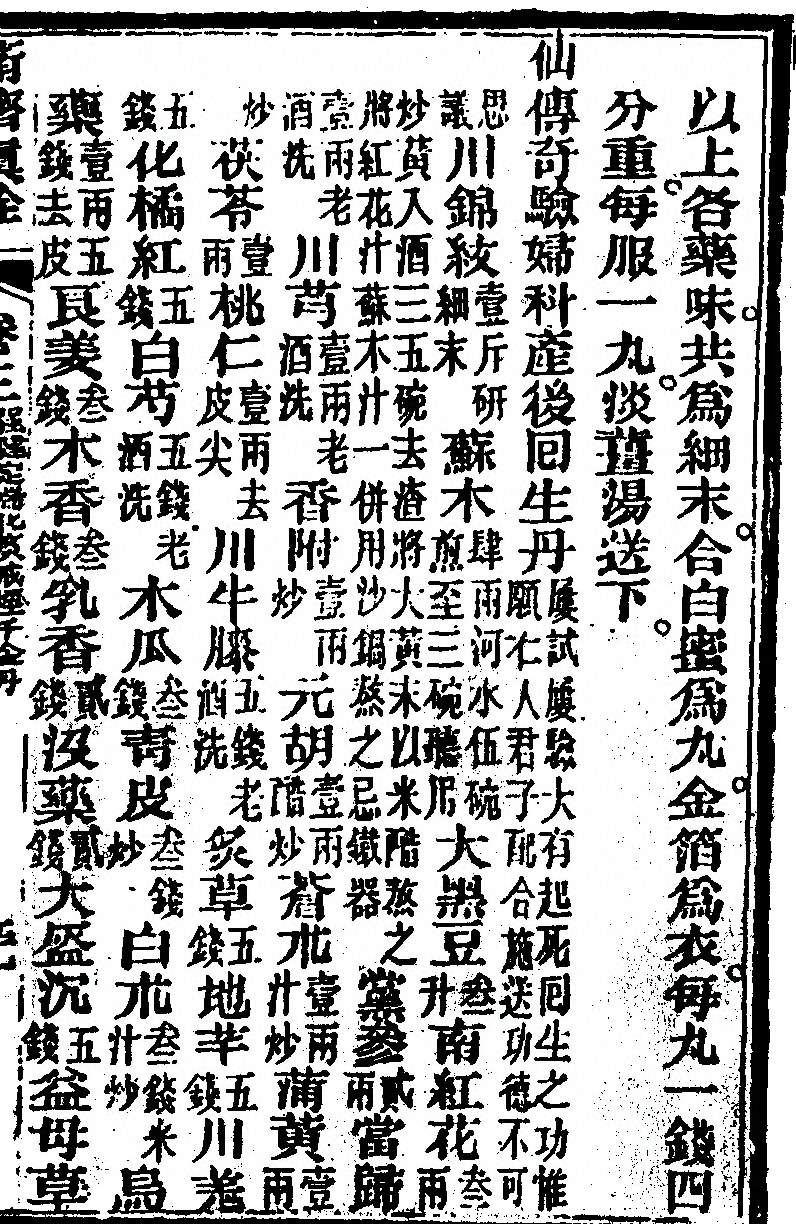 以上各藥味共為細末合白蜜為丸金箔為衣每丸一錢四
分重每服一丸淡薑湯送下
仙傳奇驗婦科產後回生丹屡試屡驗大有起死回生之功惟願仁人君子配合施送功德不可
思議川錦紋壹斤研細末蘇木肆兩河水伍碗煎至三碗聽用大黑豆叁升南紅花叁兩
炒黃入酒三五碗去渣將大黃末以米醋熬之將紅花汁蘇木汁一併用沙鍋熬之忌鐵器黨參貳兩當歸
壹兩老酒洗川芎壹兩老酒洗香附壹兩炒元胡壹兩醋炒蒼朮壹兩汁炒蒲黃壹兩
炒茯苓壹兩桃仁壹兩去皮尖川牛膝五錢老酒洗炙草五錢地芋五錢川羌
五錢化橘紅五錢白芍五錢老酒洗木瓜叁錢青皮叁錢炒白朮叁錢米汁炒烏
藥壹兩五錢去皮良姜叁錢木香叁錢乳香貳錢沒藥貳錢大盛沉五錢益母草